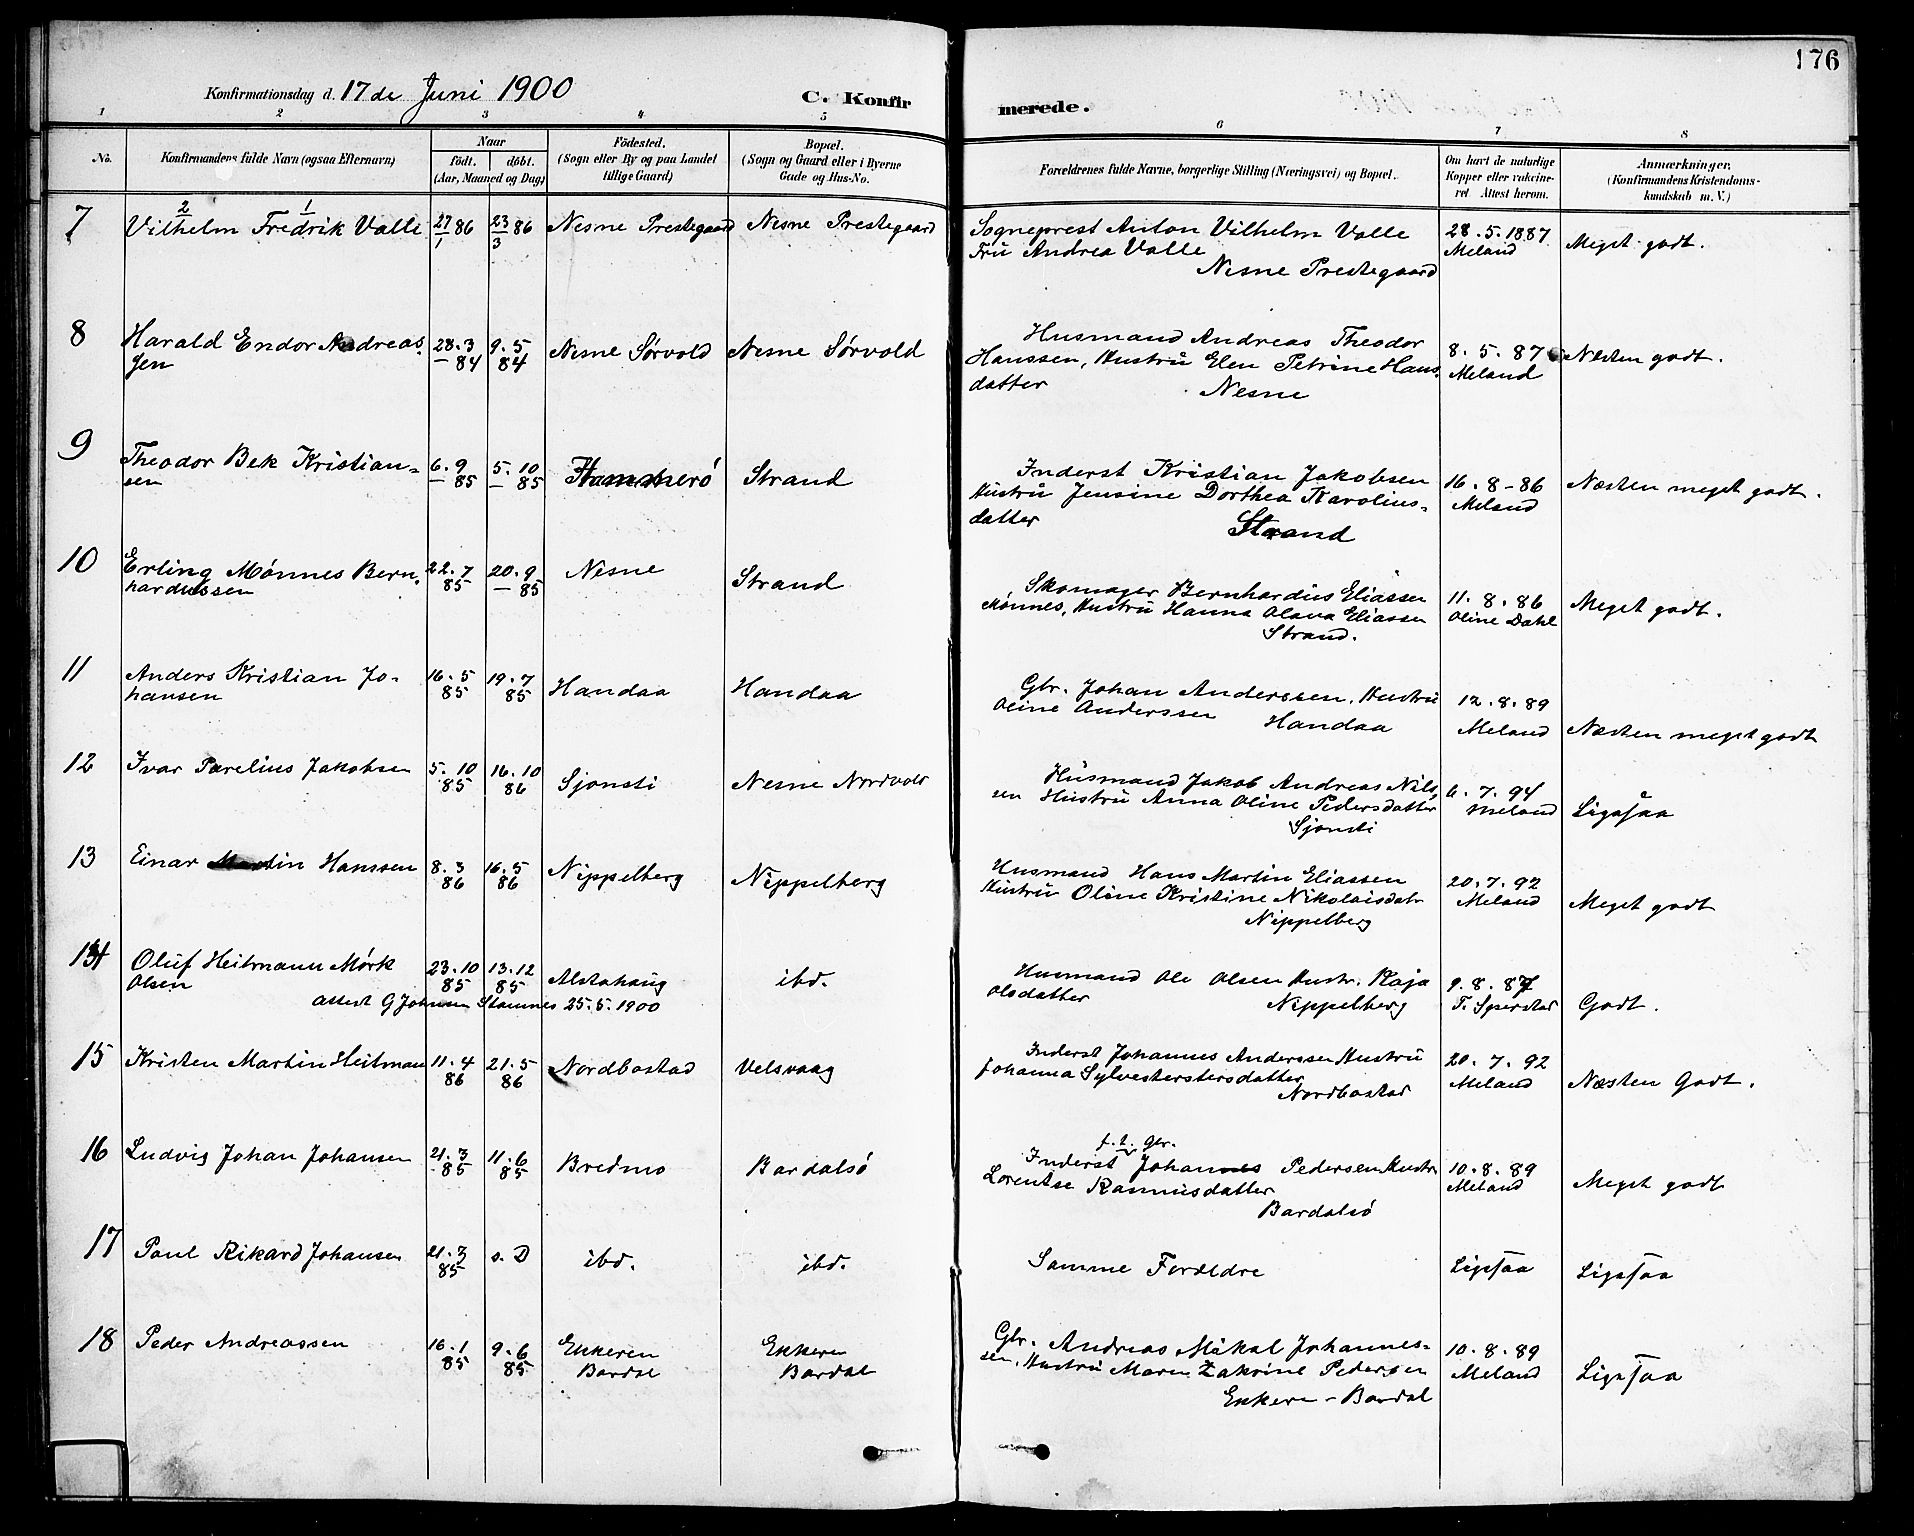 176
Konfirmationsdag d. 17de Juni 1900
C. Konfirmerede.
1 2 3 4 5 6 7 8
No.
Konfirmandens fulde Navn (ogsaa Efternavn)
Naar
födt. döbt.
(Aar, Maaned og Dag)
Födested.
(Sogn eller By og paa Landet
tillige Gaard)
Bopæl.
(Sogn og Gaard eller i Byerne
Gade og Hus-No.
Forældrenes fulde Navne, borgerlige Stilling (Næringsvei) og Bopæl.
Om havt de naturlige
Kopper eller vakcine-
ret. Attest herom.
Anmærkninger.
(Konfirmandens Kristendoms-
kundskab m. V.)
7
2 1
Vilhelm Fredrik Valle
27/1 86
23/3 86
Nesne Prestegaard
Nesne Prestegaard
Sogneprest Anton Vilhelm Valle
Fru Andrea Valle
Nesne Prestegaard
28.5.1887
Meland
Meget godt.
8
Harald Endor Andreas-
sen
28.3
84
9.5
84
Nesne Sørvold
Nesne Sørvold
Husmand Andreas Theodor
Hanssen, Hustru Elen Petrine Hans-
datter
Nesne
8.5.87
Meland
Næsten godt.
9
Theodor Bek Kristian-
sen
6.9
85
5.10
85
Hammerö
Strand
Inderst Kristian Jakobsen
Hustru Jensine Dorthea Karolius-
datter
Strand
16.8-86
Meland
Næsten meget godt.
10
Erling Mønnes Bern-
hardussen
22.7
85
20.9
85
Nesne
Strand
Skomager Bernhardus Eliassen
Mønnes, Hustru Hanna Olava Eliassen
Strand.
11.8.86
Oline Dahl
Meget godt.
11
Anders Kristian Jo-
hansen
16.5
85
19.7
85
Handaa
Handaa
Gbr. Johan Anderssen, Hustru
Oline Anderssen
Handaa
12.8.89
Meland
Næsten meget godt
12
Ivar Parelius Jakobsen
5.10
85
16.10
86
Sjonsti
Nesne Nordvold
Husmand Jakob Andreas Nils-
sen Hustru Anna Oline Pedersdatter
Sjonsti
6.7.94
Meland
Ligesaa
13
Einar Martin Hanssen
8.3
86
16.5
86
Nippelberg
Nippelberg
Husmand Hans Martin Eliassen
Hustru Oline Kristine Nikolaisdatr
Nippelberg
20.7.92
Meland
Meget godt
14
Oluf Heitmann Mörk
Olsen
23.10
85
13.12
85
Alstahaug
ibd.
Attest G Johnsen Stamnes 25.5.1900
Husmand Ole Olsen Hustr. Kaja
Olsdatter
Nippelberg
9.8.87
Godt.
15
Kristen Martin Heitman
11.4
86
21.5
86
Nordbostad
Velsvaag
Inderst Johannes Anderssen Hustru
Johanna Sylvesterstersdatter
Nordbostad
20.7.92
Meland
Næsten Godt.
16
Ludvig Johan Johansen
21.3
85
11.6
85
Bredmo
Bardalsö
f.t. Gbr.
Inderst Johannes Pedersen Hustr
Lorentse Rasmusdatter
Bardalsö
10.8.89
Meland
Meget godt
17
Paul Rikard Johansen
21.3
85
s. D
ibd.
ibd.
Samme Forældre
Ligesaa
Ligesaa
18
Peder Andreassen
16.1
85
9.6
85
Ekkeren
Bardal
Ekkeren
Bardal
Gbr. Andreas Mikal Johannes-
sen, Hustru Maren Zakrine Pedersen
Ekkeren - Bardal
10.8.89
Meland
Ligesaa